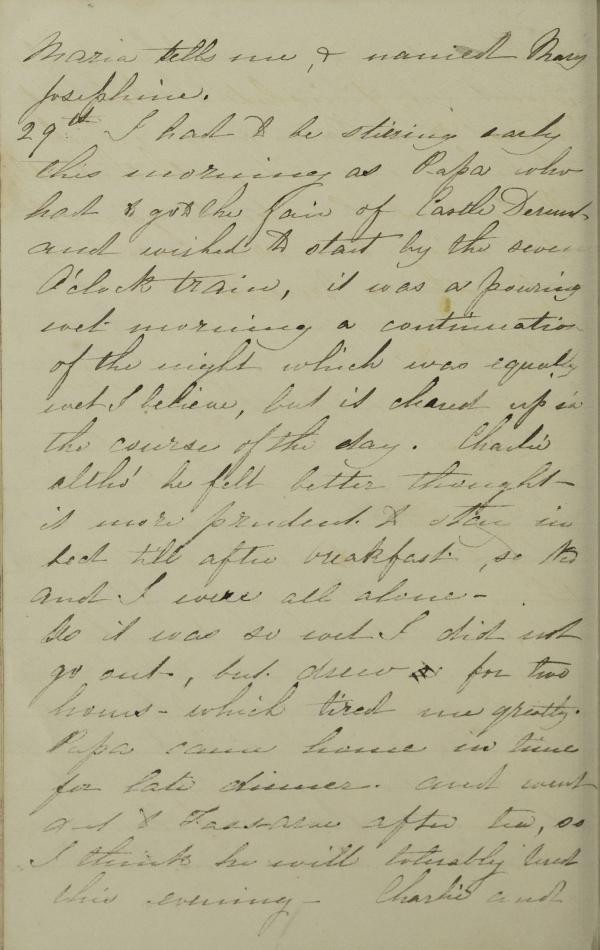 Maria tells me, & named Mary
Josephine.
29th I had to be stirring early
this morning as Papa who
had to go to the Fair of Castle Dermot
and wished to start by the seven
O'clock train, it was a pouring
wet morning a continuation
of the night which was equally
wet I believe, but it cleared up in
the course of the day. Charlie
altho' he felt better thought
it more prudent to stay in
bed till after breakfast, so
and I were all alone -
As it was so wet I did not
go out, but drew for two
hours - which tired me greatly.
Papa came home in time
for late dinner. and went
out to Fassaroe after tea, so
I think he will tolerably tired
this evening - Charlie and